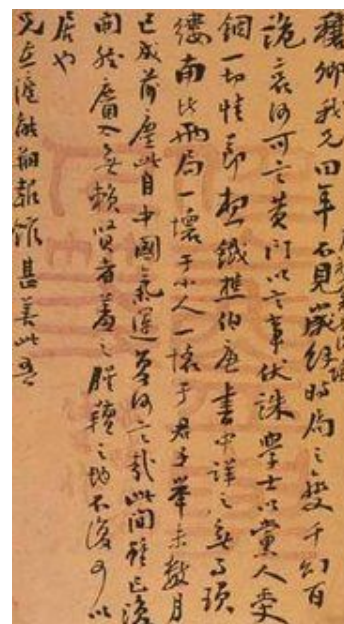 穰卿我兄四年不見嚴緂時局之變千幻百
詭哀何可言黃門以言事伏誅學士以黨人受
錮一切情節想鐵樵伯唐書中詳之無事瑣
縷南北兩局一壞于小人一懷于君子舉未數月
已成前塵此自中國氣運夫何言哉此間雖已復
開然麕入無賴賢者羞之腥羶之地不復可以
居也
兄在滬能翔報館甚善此吾